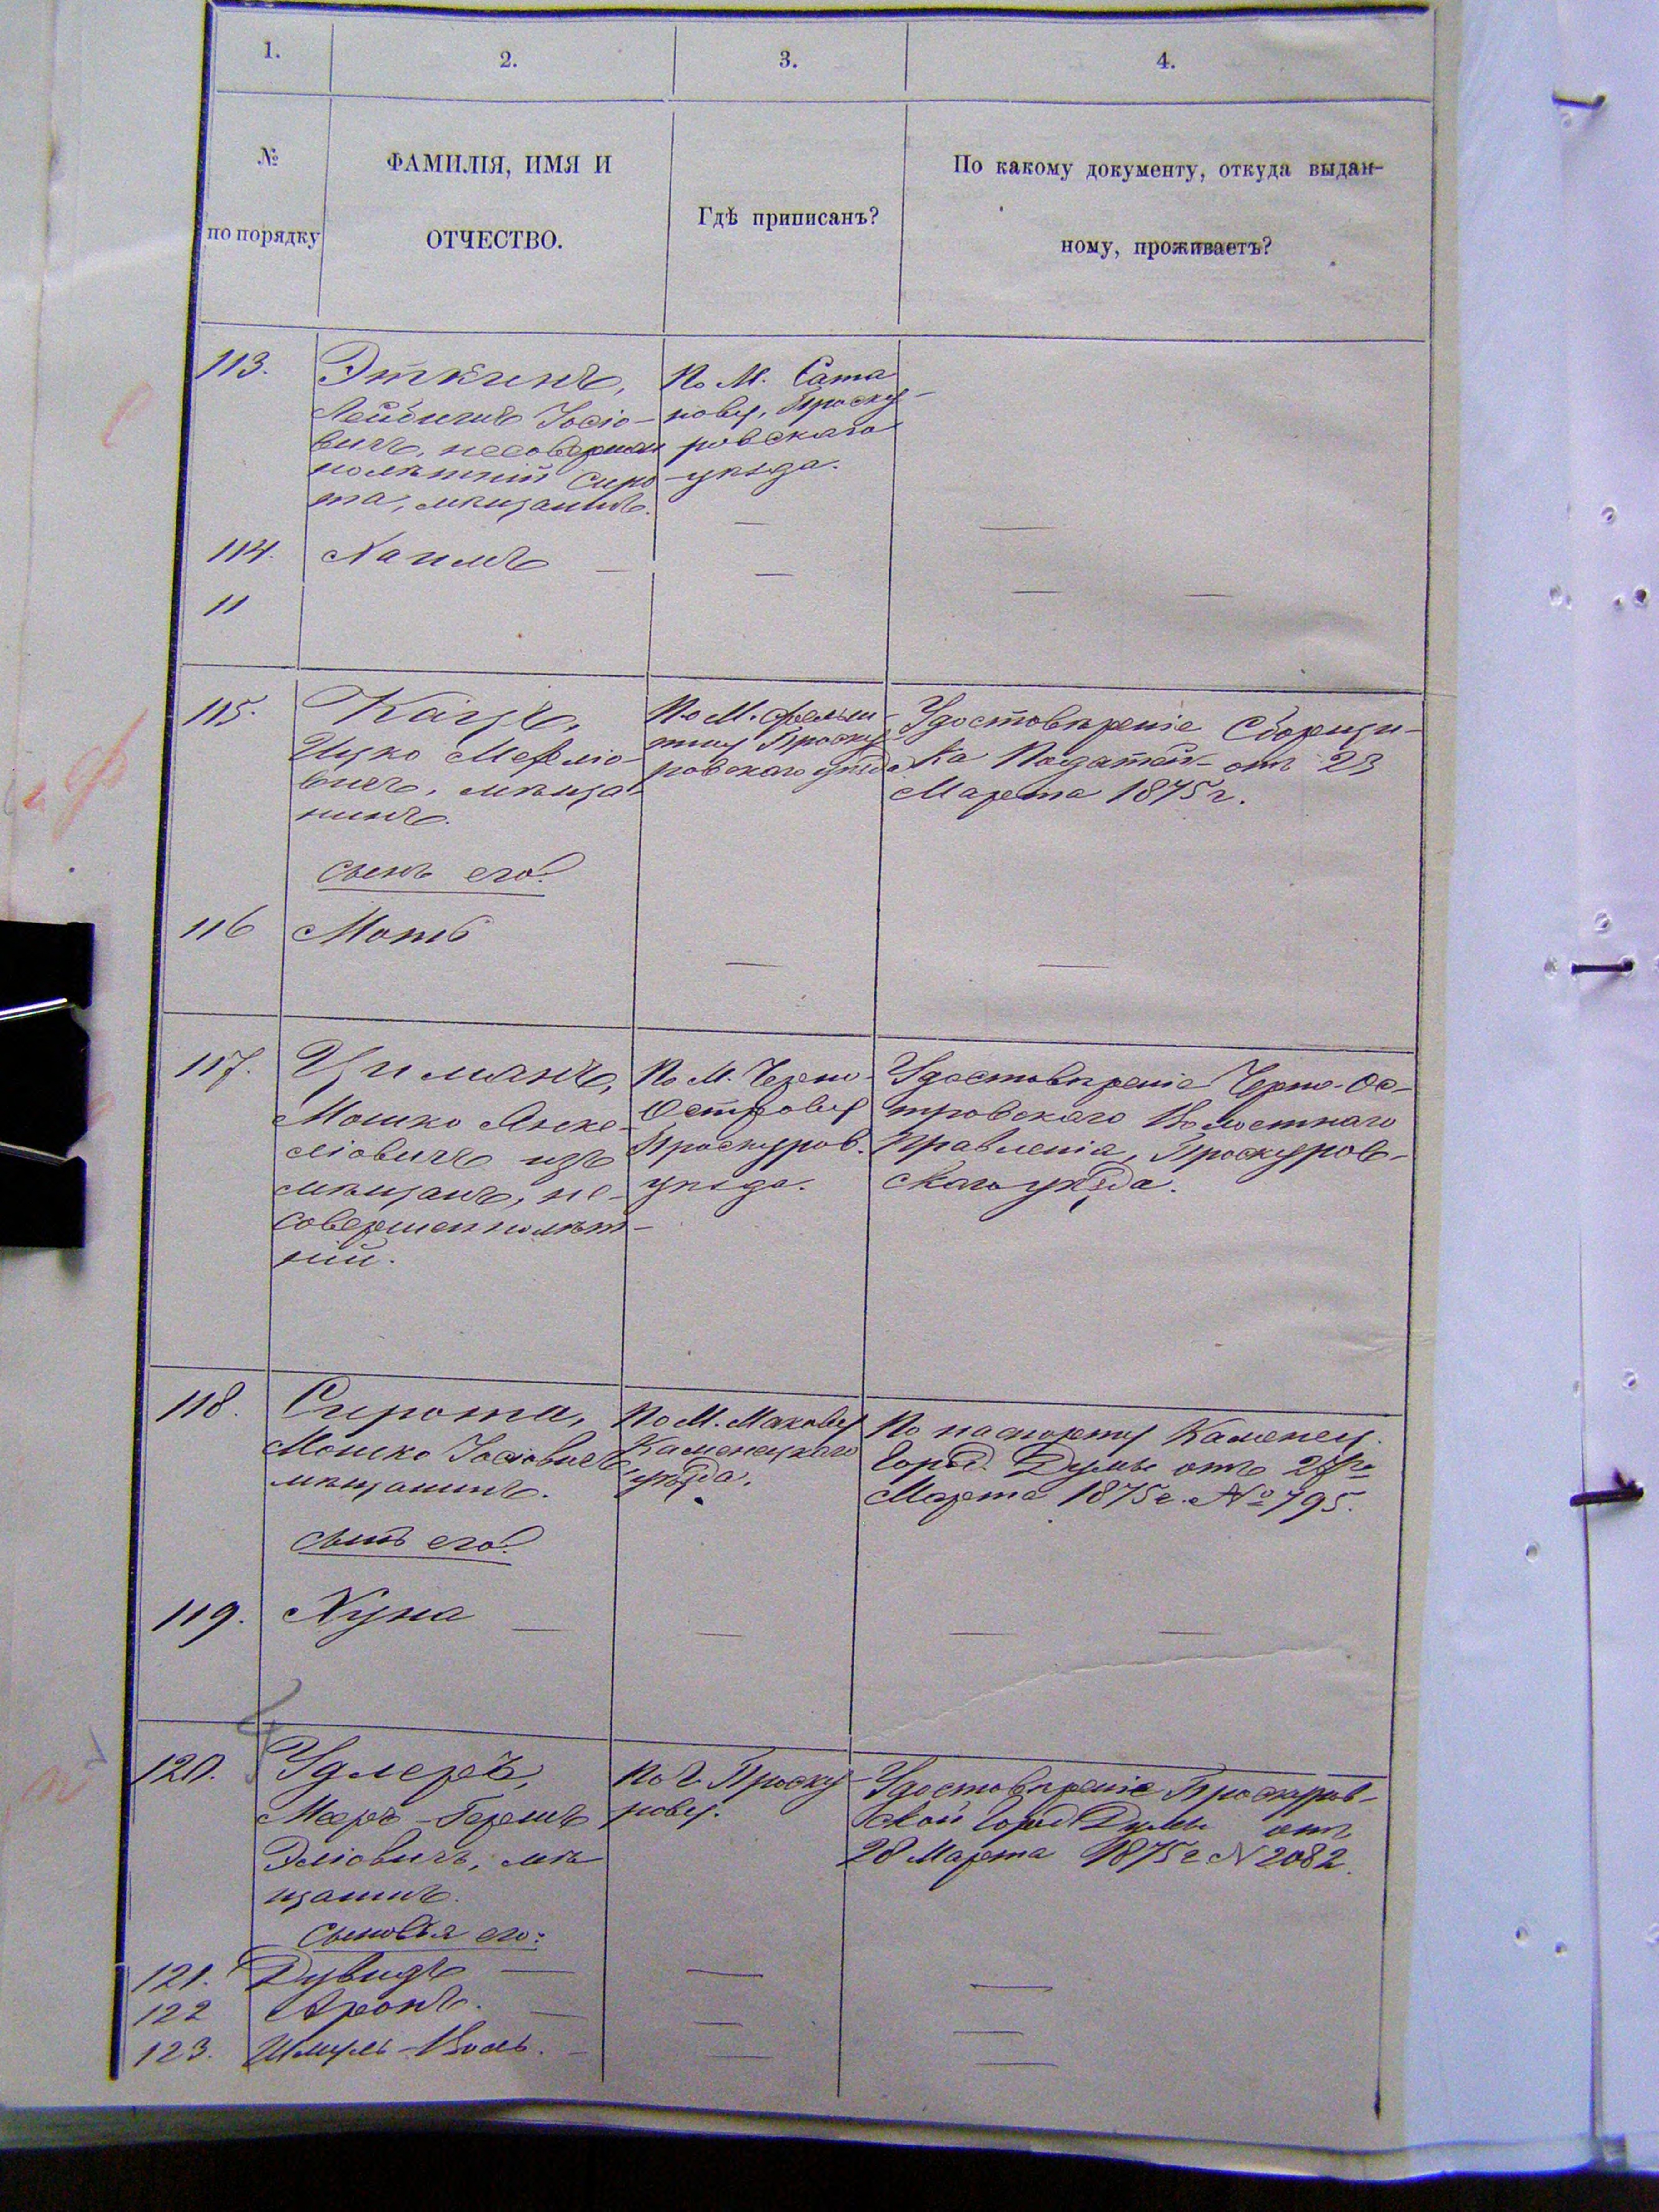 1.
2.
3.
4.
№
по порядку
ФАМИЛІЯ, ИМЯ И
ОТЧЕСТВО.
Гдѣ приписанъ?
По какому документу, откуда выдан-
ному, проживаетъ?
113.
Эткинъ,
Лейбишъ Іосіо-
вичъ, несовершен
нолѣтній сиро
та, мѣщанинъ.
По М. Сата
нову, Проску-
ровскаго
уѣзда.
114.
Хаимъ —
11
115.
Кацъ,
Ицко Мефліо-
вичъ, мѣща
нинъ.
По М. Фельш
тину Проску
ровскаго уѣзда
Удостовѣреніе Сборщи-
ка Податей отъ 23
Марта 1875 г.
сынъ его:
116
Моть
117.
Циманъ,
Мошко Янке-
ліовичъ изъ
мѣщанъ, не-
совершеннолѣт-
ній.
По М. Черно-
Острову
Проскуров.
уѣзда.
Удостовѣреніе Черно-Ос-
тровскаго Волостнаго
Правленія, Проскуров-
скаго уѣзда.
118.
Сирота,
Мошко Іосіовичъ
мѣщанинъ.
По М. Макову
Каменецкаго
уѣзда.
По паспорту Каменец.
Город. Думы отъ
Марта 1875 г. № 795.
сынъ его:
119.
Хуна —
120.
Удлеръ,
Мееръ-Гершъ
Эліовичъ, мѣ
щанинъ.
По г. Проску-
рову.
Удостовѣреніе Проскуров-
ской Город Думы отъ
28 Марта 1875 г № 2082.
сыновья его:
121. Дувидъ —
122 Аронъ. —
123. Шмуль-Воль. —